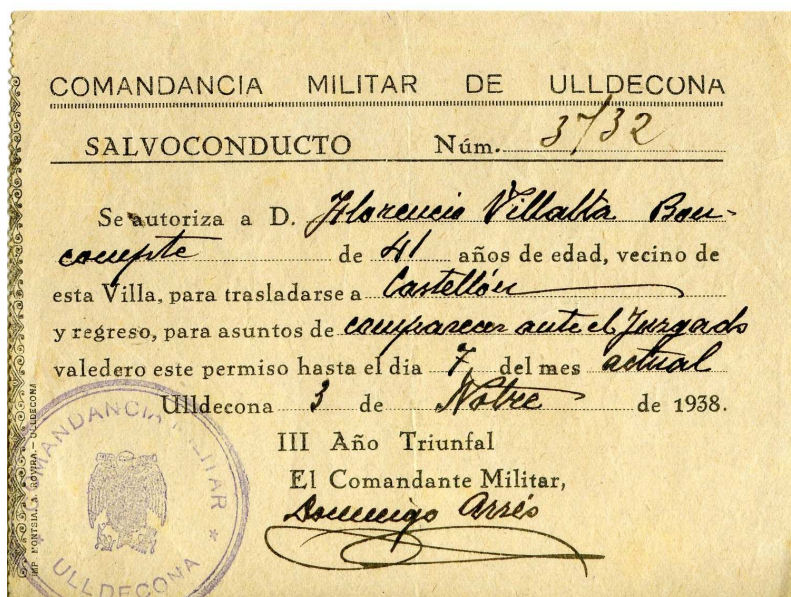 COMANDANCIA MILITAR DE ULLDECONA
SALVOCONDUCTO Núm. 3732
Se autoriza a D. Florencio Villalta Bon-
compte de 41 años de edad, vecino de
esta Villa, para trasladarse a Castellón
y regreso, para asuntos de comparecer ante el Juzgado
valedero este permiso hasta el dia 7 del mes actual
Ulldecona 3 de Nobre de 1938.
III Año Triunfal
El Comandante Militar,
Domingo Arrés
COMANDANCIA MILITAR
* ULLDECONA *
IMP. MONTSIA, A. ROVIRA.-ULLDECONA